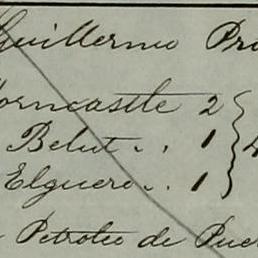 Guillermo Pr
orncastle 2
Belut .. 1
Elguero .. 1
Petroleo de Pue